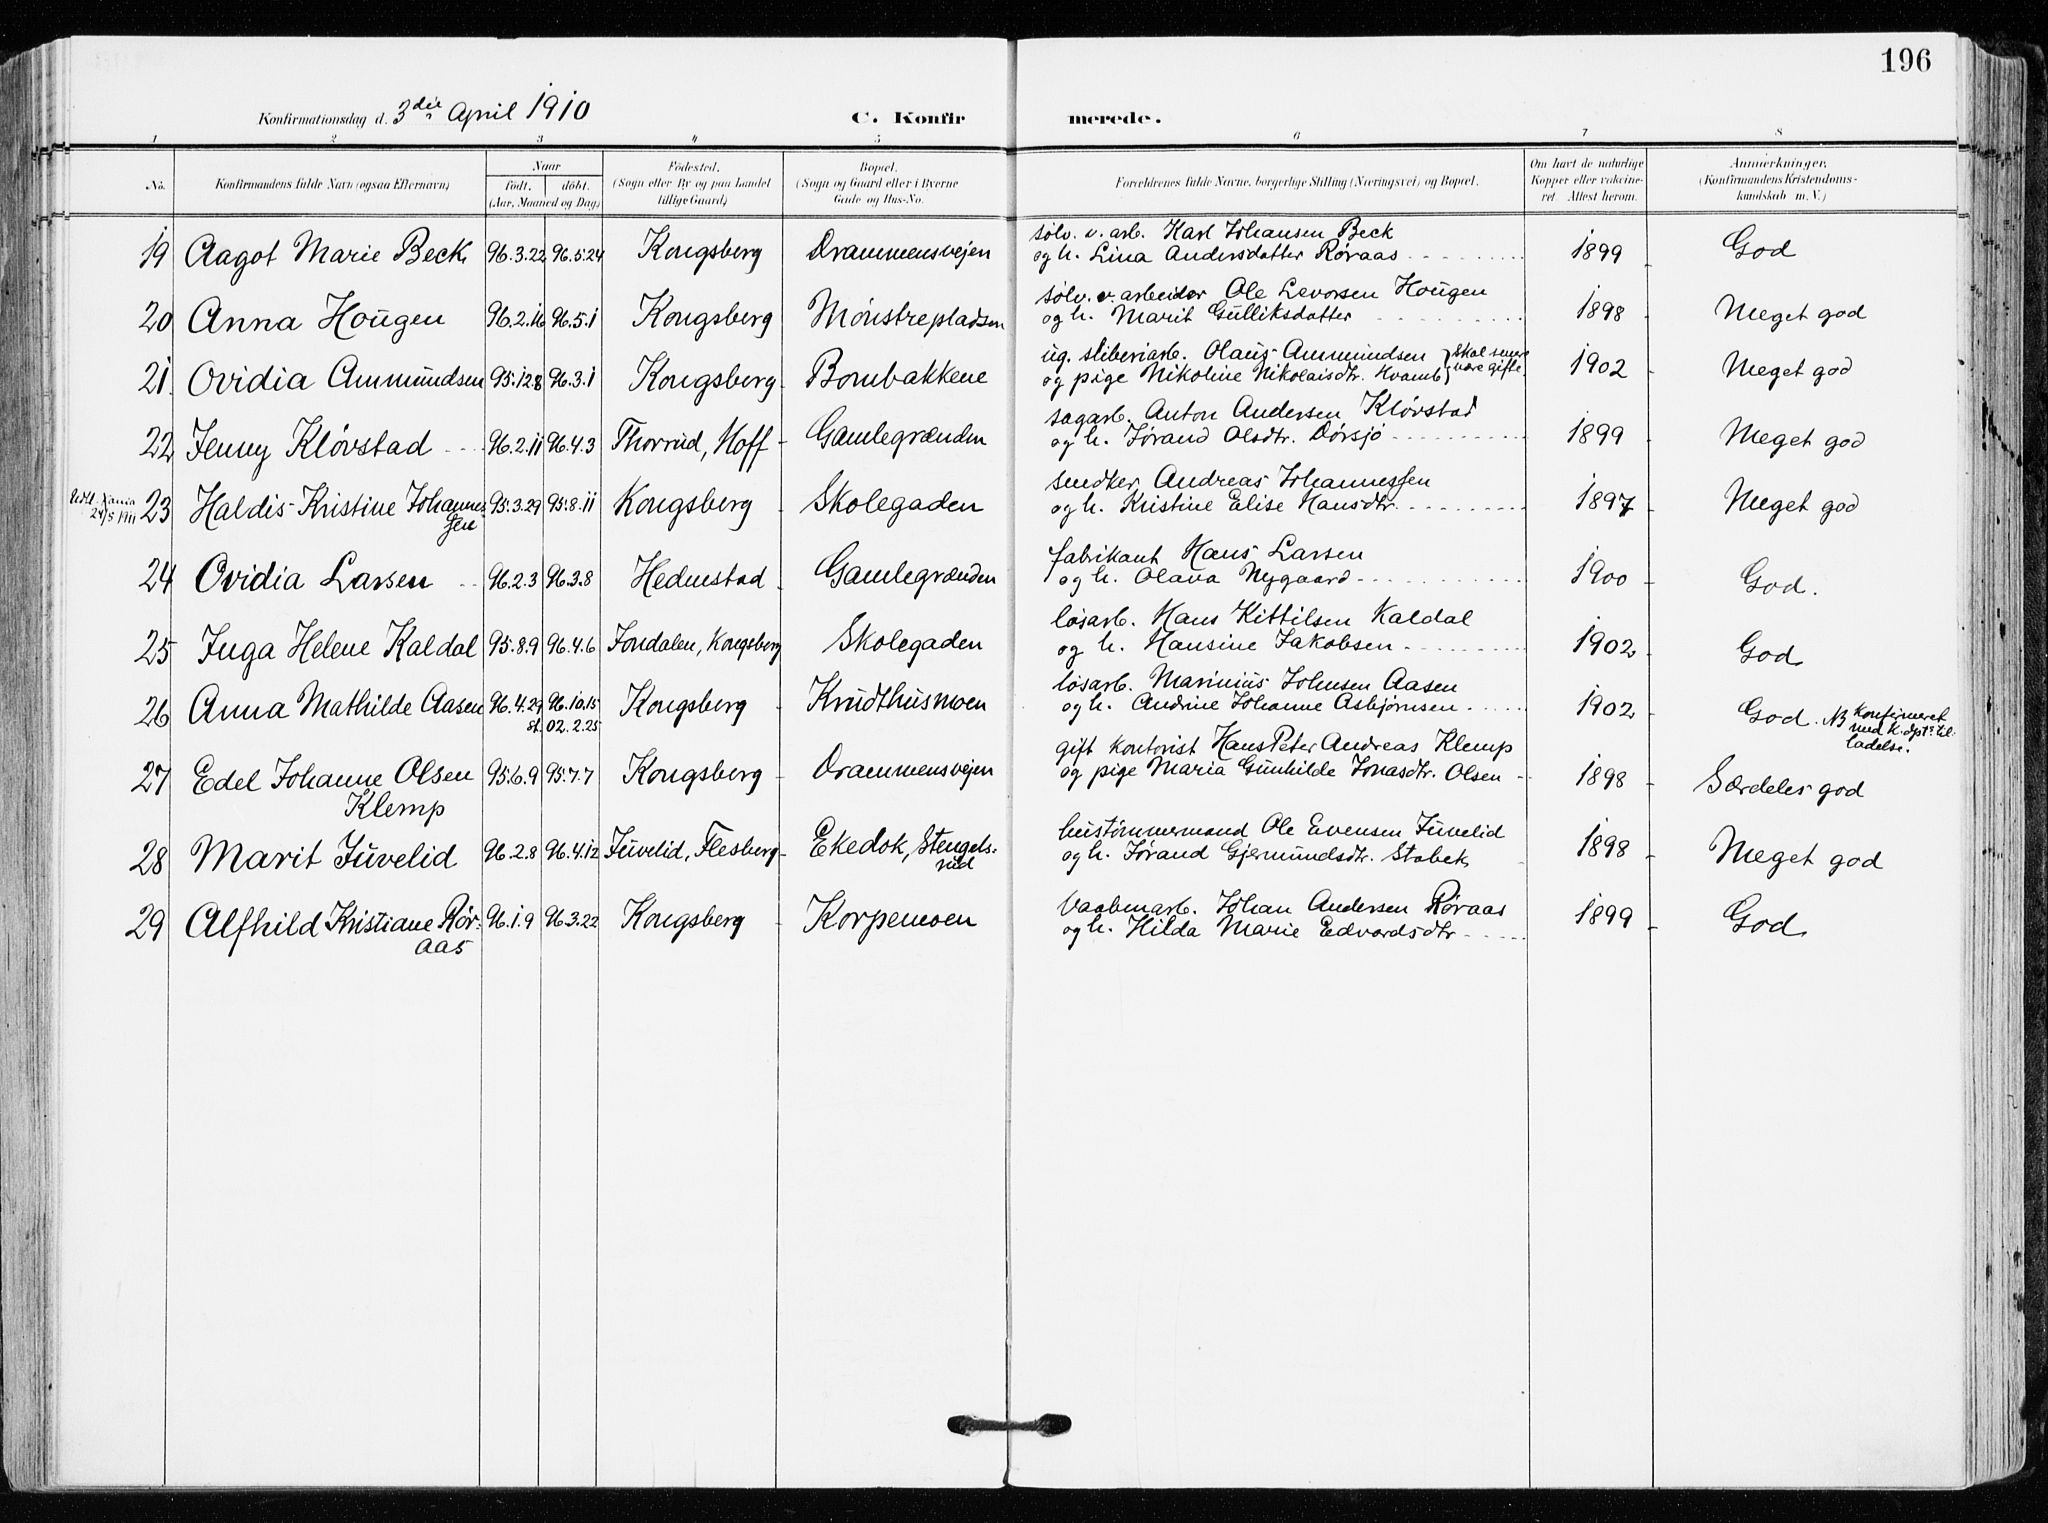 196
Konfirmationsdag d. 3die April 1910 C. Konfirmerede.
1 2 3 4 5 6 7 8
No. Konfirmandens fulde Navn (ogsaa Efternavn) Naar født, døbt. (Aar, Maaned og Dag) Fødested. (Sogn eller By og paa Landet tillige Gaard) Bopæl. (Sogn og Gaard eller i Byerne Gade og Hus-No. Forældrenes fulde Navne, borgerlige Stilling (Næringsvei) og Bopæl. Om havt de naturlige Kopper eller vakcineret. Attest herom. Anmærkninger. (Konfirmandens Kristendomskundskab m. V.)
19 Aagot Marie Beck 96.3.22 96.5.24 Kongsberg Drammensvejen sølv. v. arb. Karl Johansen Beck
og h. Lina Andersdatter Røraas 1899 God
20 Anna Hougen 96.2.16 96.5.1 Kongsberg Mønstrepladsen sølv. v. arbeider Ole Levorsen Hougen
og h. Marit Gulliksdatter 1898 Meget god
21 Ovidia Ammundsen 95.12.8 96.3.1 Kongsberg Bombakkene ug. sliberiarb. Olaus Ammundsen
og pige Nikoline Nikolaisdtr. Hvamb } skal senere være gifte. 1902 Meget god
22 Jenny Kløvstad 96.2.11 96.4.3 Thorrud, Hoff Gamlegrænden sagarb. Anton Andersen Kløvstad
og h. Jørand Olsdtr. Dørsjø 1899 Meget god
24/5 1911 23 Haldis Kristine Johannessen 95.3.29 95.8.11 Kongsberg Skolegaden snedker Andreas Johannessen
og h. Kristine Elise Hansdtr. 1897 Meget god
24 Ovidia Larsen 96.2.3 96.3.8 Hedenstad Gamlegrænden fabrikant Hans Larsen
og h. Olava Nygaard 1900 God.
25 Inga Helene Kaldal 95.8.9 96.4.6 Jondalen, Kongsberg Skolegaden løsarb. Hans Kittilsen Kaldal
og h. Hansine Jakobsen 1902 God
26 Anna Mathilde Aasen 96.4.29 96.10.15 st. 02.2.25 Kongsberg Krudthusmoen løsarb. Marinius Johnsen Aasen
og h. Andrine Johanne Asbjørnsen 1902 God. NB Konfirmeret med K.dpts tilladelse.
27 Edel Johanne Olsen Klemp 95.6.9 95.7.7 Kongsberg Drammensvejen gift kontorist Hans Peter Andreas Klemp
og pige Maria Gunhilde Jonasdtr. Olsen 1898 Særdeles god
28 Marit Juvelid 96.2.8 96.4.12 Juvelid, Flesberg Ekedok, Stengelsrud hustømmermand Ole Evensen Juvelid
og h. Jørand Gjermundsdtr. Stabek 1898 Meget god
29 Alfhild Kristiane Røraas 96.1.9 96.3.22 Kongsberg Korpemoen Vaabenarb. Johan Andersen Røraas
og h. Hilda Marie Edvardsdtr 1899 God